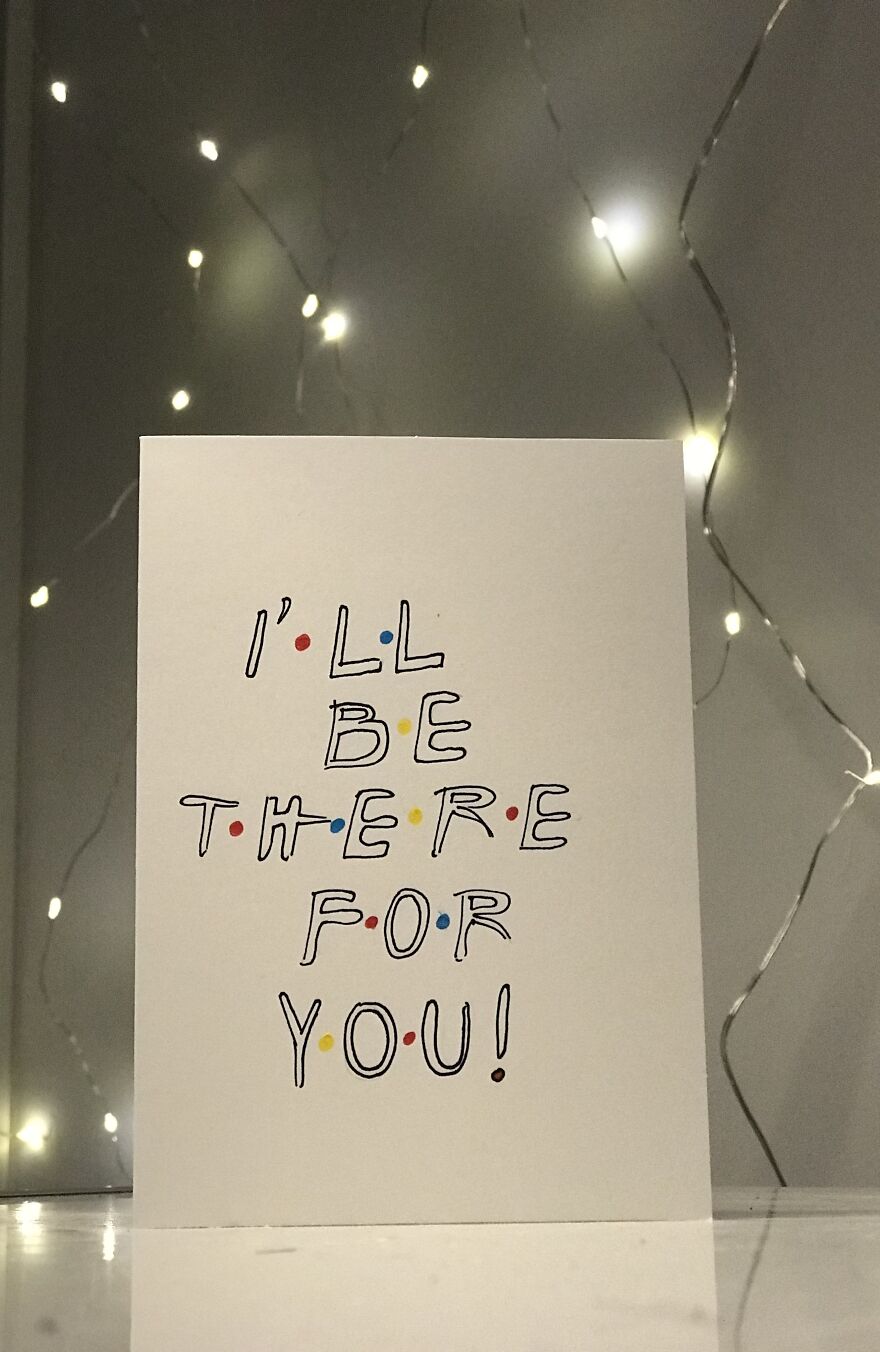 I'·L·L
B·E
T·H·E·R·E
F·O·R
Y·O·U!